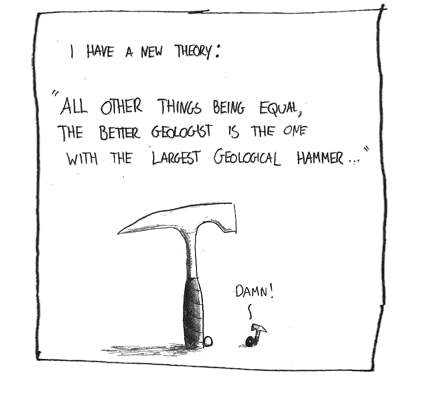 I HAVE A NEW THEORY:
"ALL OTHER THINGS BEING EQUAL,
THE BETTER GEOLOGIST IS THE ONE
WITH THE LARGEST GEOLOGICAL HAMMER..."
DAMN!